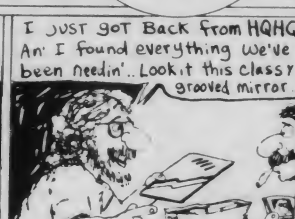 I JUST GOT BACK from HQHQ
An' I found everything we've
been needin'.. Look it this classy
grooved mirror..